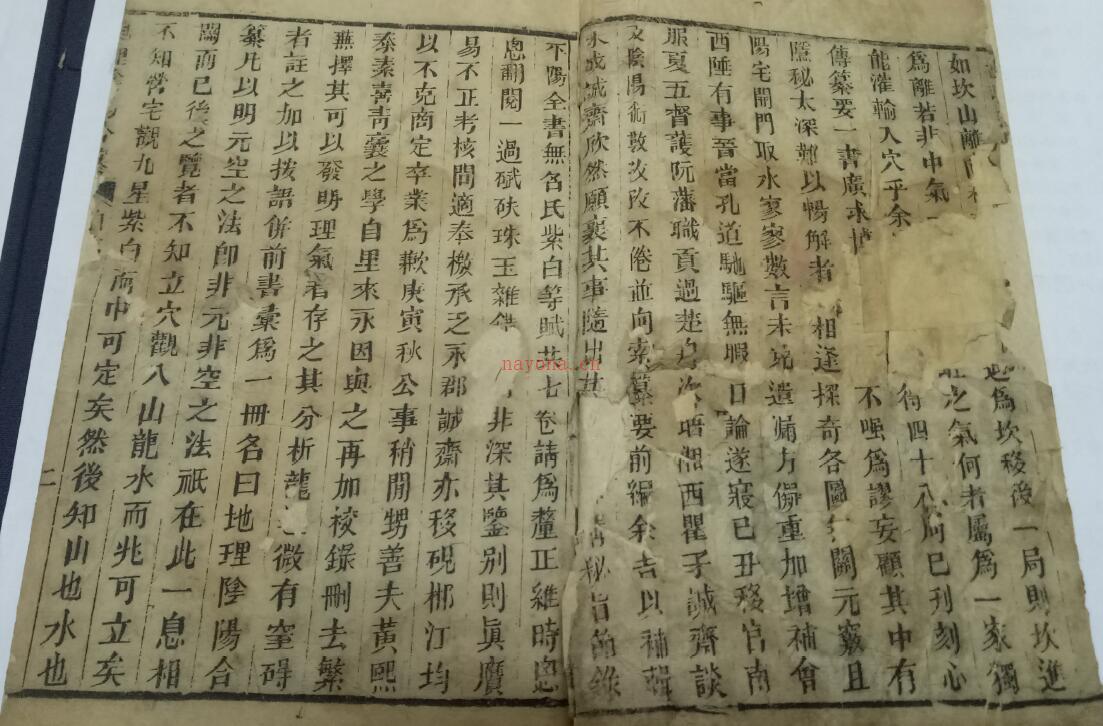 如坎山離
一局則坎進
為離若非中氣
為坎移後
能灌輸入穴乎余
之氣何者屬為一家獨
傳纂要一書廣求
得四十八局已刊刻心
隱秘太深難以暢解者
不嗤為謬妄顧其中有
陽宅開門取水寥寥數言未
相逢探奇各圖
闢元竅且
酉陲有事晉當孔道馳驅無暇
遺漏方儗重加增補會
服夏五督護阮藩職貢過楚
日論遂寢己丑移官南
次晤湘西瞿子誠齋談
及陰陽術數孜孜不倦並向索纂要前編余告以補輯
未成誠齋欣然願襄其事隨出其
秘旨節錄
平陽全書無名氏紫白等賦共七卷請為釐正維時悤
悤翻閱一過碔砆珠玉雜
非深其鑒別則眞贗
易不正考核間適奉檄承乏永郡誠齋亦移硯郴江均
以不克商定卒業為歉庚寅秋公事稍閒甥善夫黃熙
泰素喜青囊之學自里來永因與之再加稜錄刪去繁
蕪擇其可以發明理氣者存之其分析龍
微有窒碍
者註之加以按語併前書彙為一冊名曰地理陰陽合
纂凡以明元空之法即非元非空之法祇在此一息相
關而已後之覽者不知立穴觀八山龍水而兆可立矣
不知營宅觀九星紫白
而巾可定矣然後知山也水也
二
nayona.cn